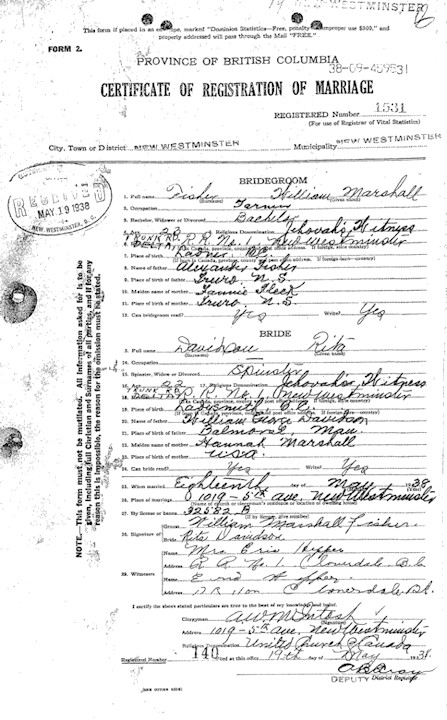 NEW WESTMINSTER
This form if placed in an envelope, marked "Dominion Statistics—Free, penalty for improper use $300," and
properly addressed will pass through the Mail "FREE."
FORM 2.
PROVINCE OF BRITISH COLUMBIA
38-09-459531
CERTIFICATE OF REGISTRATION OF MARRIAGE
REGISTERED Number 1531
(For use of Registrar of Vital Statistics)
City, Town or District NEW WESTMINSTER Municipality NEW WESTMINSTER
RECEIVED
MAY 19 1938
NEW WESTMINSTER, B. C.
NOTE.—This form must not be mutilated. All information asked for is to be
given, including full Christian and Surnames of all parties, and if for any
reason this is impossible, the reason for the omission must be stated.
BRIDEGROOM
1. Full name Fisher William Marshall
(Surname) (Given name)
2. Occupation
3. Bachelor, Widower or Divorced Bachelor
4. Age 23 5. Religious Denomination Jehovah's Witness
TRUNK RD. DELTA R.R. No. 1, New Westminster
7. Place of birth Ladner B.C.
8. Name of father Alexander Fisher
9. Place of birth Truro N. S.
10. Maiden name of mother Fannie Fleck
11. Place of birth of mother Truro N. S.
12. Can bridegroom read? Yes Write? Yes
BRIDE
13. Full name Davidson Rita
(Surname) (Given name)
14. Occupation
15. Spinster, Widow or Divorced Spinster
16. Age 22 17. Religious Denomination Jehovah's Witness
TRUNK RD. DELTA R. No. 1, New Westminster
19. Place of birth Ladysmith B. C.
20. Name of father William George Davidson
21. Place of birth Balmoral Man.
22. Maiden name of mother Hannah Marshall
23. Place of birth of mother U.S.A.
24. Can bride read? Yes Write? Yes
25. When married Eighteenth day of May 1938
26. Place of marriage 1019 - 5th ave. New Westminster
27. By license or banns 32582 B
28. Signature of
Groom William Marshall Fisher
Bride Rita Davidson
29. Witnesses
Name Mrs.
Address R. R. No. 1 Cloverdale B.C.
Name
Address Cloverdale B.C.
I certify the above stated particulars are true to the best of my knowledge and belief.
Clergyman A.W. McIntosh
(Signature)
Address 1019 - 5th ave. New Westminster
Religious Denomination United Church of Canada
Registered Number 140 Filed at this office 19th day of May 1938
DEPUTY District Registrar